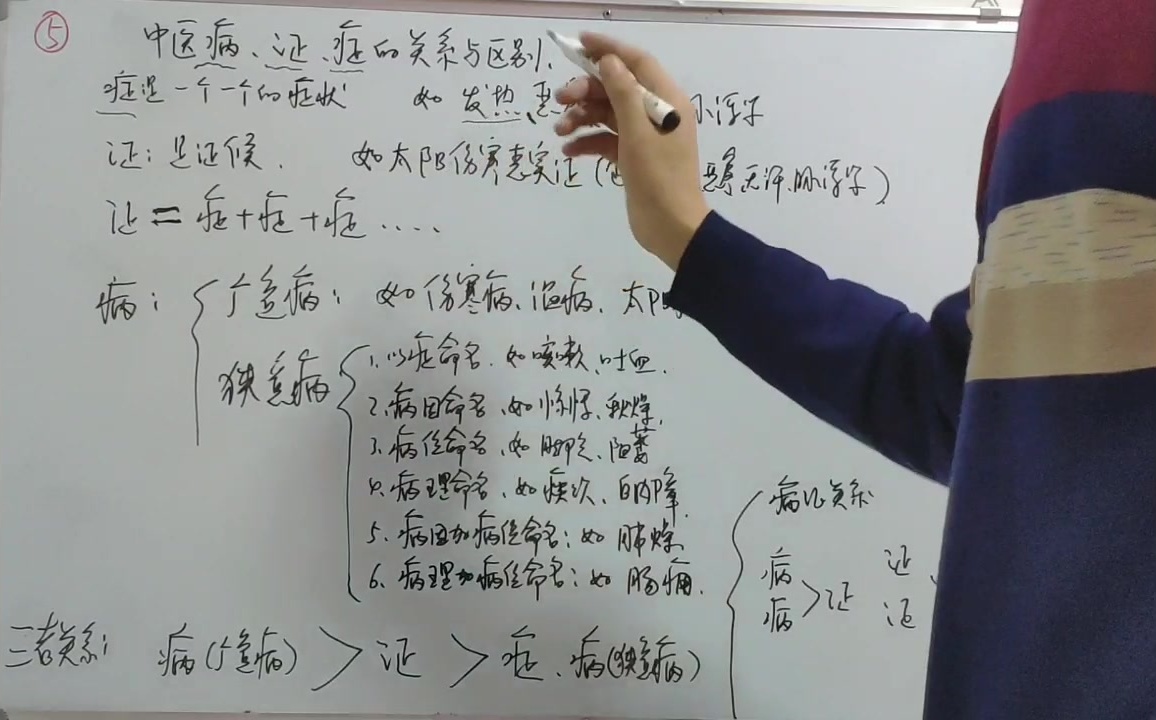 ⑤ 中医病、证、症的关系与区别、
症是一个一个的症状 如 发热、恶 脉浮紧
证：是证候. 如太阳伤寒表实证( 恶寒无汗.脉浮紧)
证 = 症+症+症....
病：
广意病：如伤寒病、温病、太阳
狭意病
1.以症命名、如咳嗽、吐血.
2、病因命名、如 秋燥、
3、病位命名、如脚气、阳萎
4.病理命名、如痰饮、白内障
5、病因加病位命名：如 肺燥
6、病理加病位命名：如 肠痈.
病证关系
病 证
病 > 证 证
三者关系：病(广意病) > 证 > 症、病(狭意病)